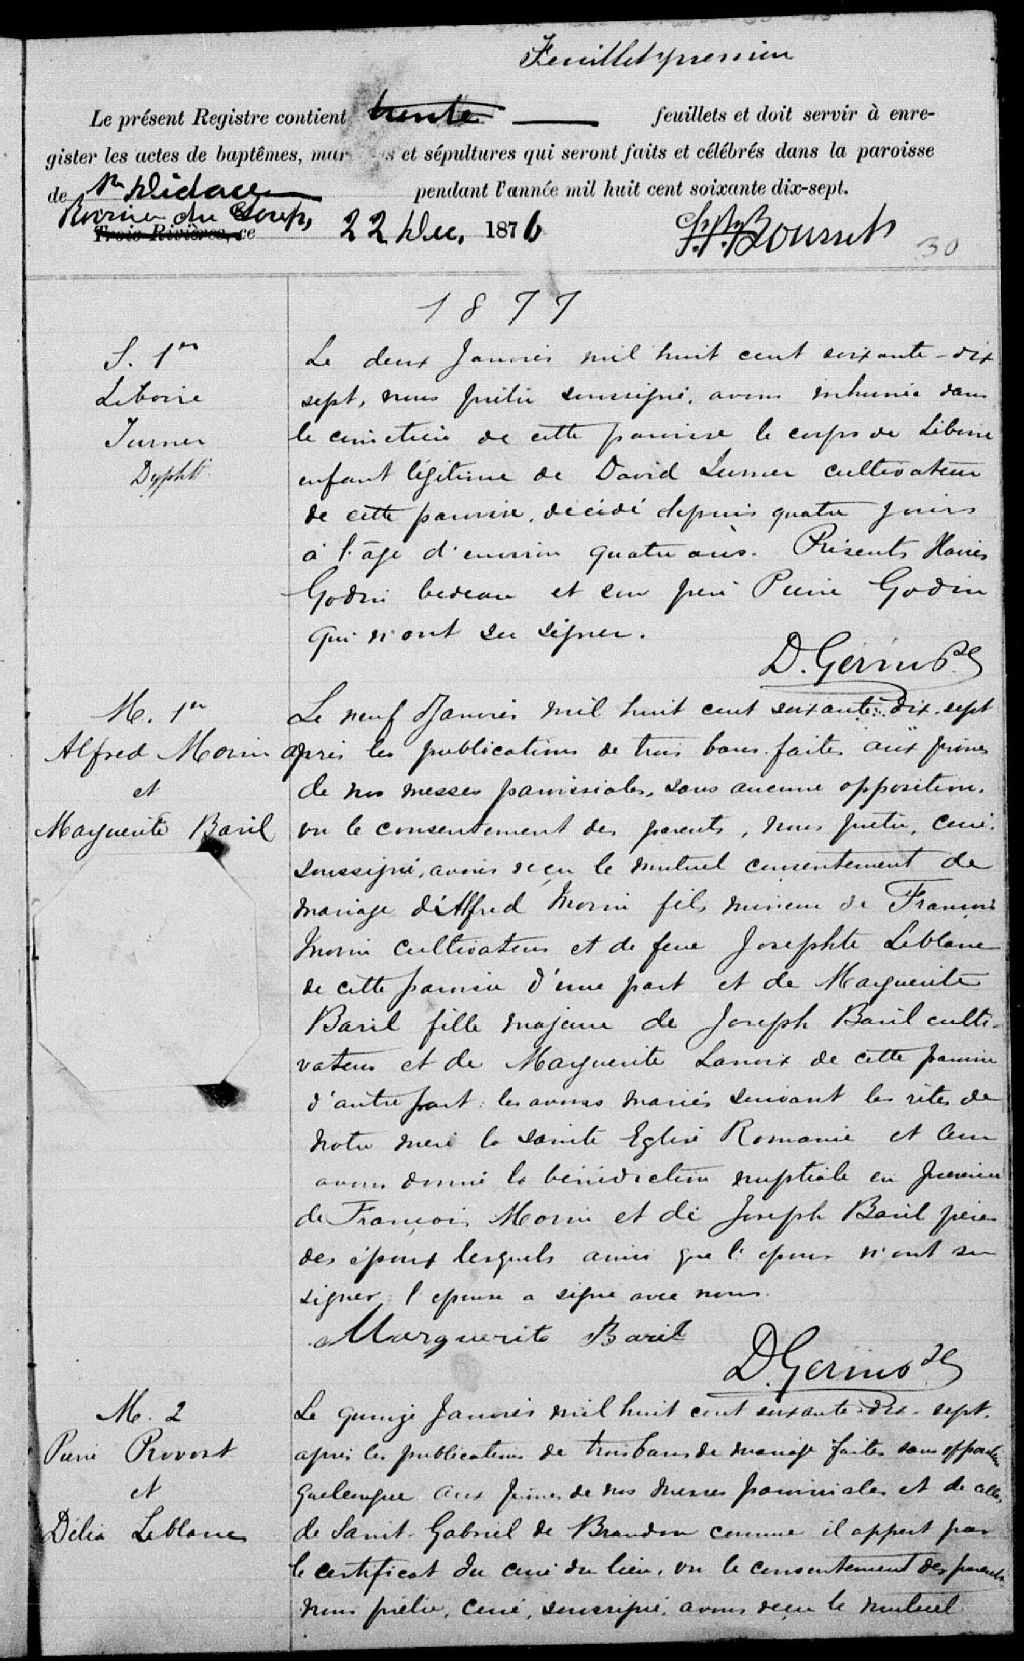 Feuillet premier
Le présent Registre contient trente feuillets et doit servir à enre-
gister les actes de baptêmes, mar s et sépultures qui seront faits et célébrés dans la paroisse
de St Didace pendant l'année mil huit cent soixante dix-sept.
Trois-Rivières, ce 22 Dec. 1876
30
1877
S. 1er
Liboire
Turner
Le deux Janvier mil huit cent soixante-dix
sept, nous prêtre soussigné, avons inhumé dans
le cimetière de cette paroisse le corps de Liboire
enfant légitime de David Turner cultivateur
de cette paroisse, décédé depuis quatre jours
à l'âge d'environ quatre ans. Présents
Godin bedeau et son père Pierre Godin
qui n'ont su signer.
D. Gérin Ptre
M. 1er
Alfred Morin
et
Marguerite Baril
Le neuf Janvier mil huit cent soixante-dix-sept
après les publications de trois bans faites aux prônes
de nos messes paroissiales, sans aucune opposition,
vu le consentement des parents, nous prêtre, curé,
soussigné, avons reçu le mutuel consentement de
mariage d'Alfred Morin fils mineur de François
Morin cultivateur et de feue Josephte Leblanc
de cette paroisse d'une part et de Marguerite
Baril fille majeure de Joseph Baril culti-
vateur et de Marguerite Lanoix de cette paroisse
d'autre part: les avons mariés suivant les rites de
notre mère la Sainte Eglise Romaine et leur
avons donné la bénédiction nuptiale en présence
de François Morin et de Joseph Baril pères
des époux lesquels ainsi que l'époux n'ont su
signer, l'epouse a signé avec nous.
Marguerite Baril
D. Gérin Ptre
M. 2
Pierre Provost
et
Délia Leblanc
Le quinze Janvier mil huit cent soixante-dix-sept.
après les publications de trois bans de mariage faites sans opposition
quelconque aux prônes de nos messes paroissiales et de celles
de Saint-Gabriel de Brandon comme il appert par
le certificat du curé du lieu, vu le consentement des parents
nous prêtre, curé, soussigné, avons reçu le mutuel